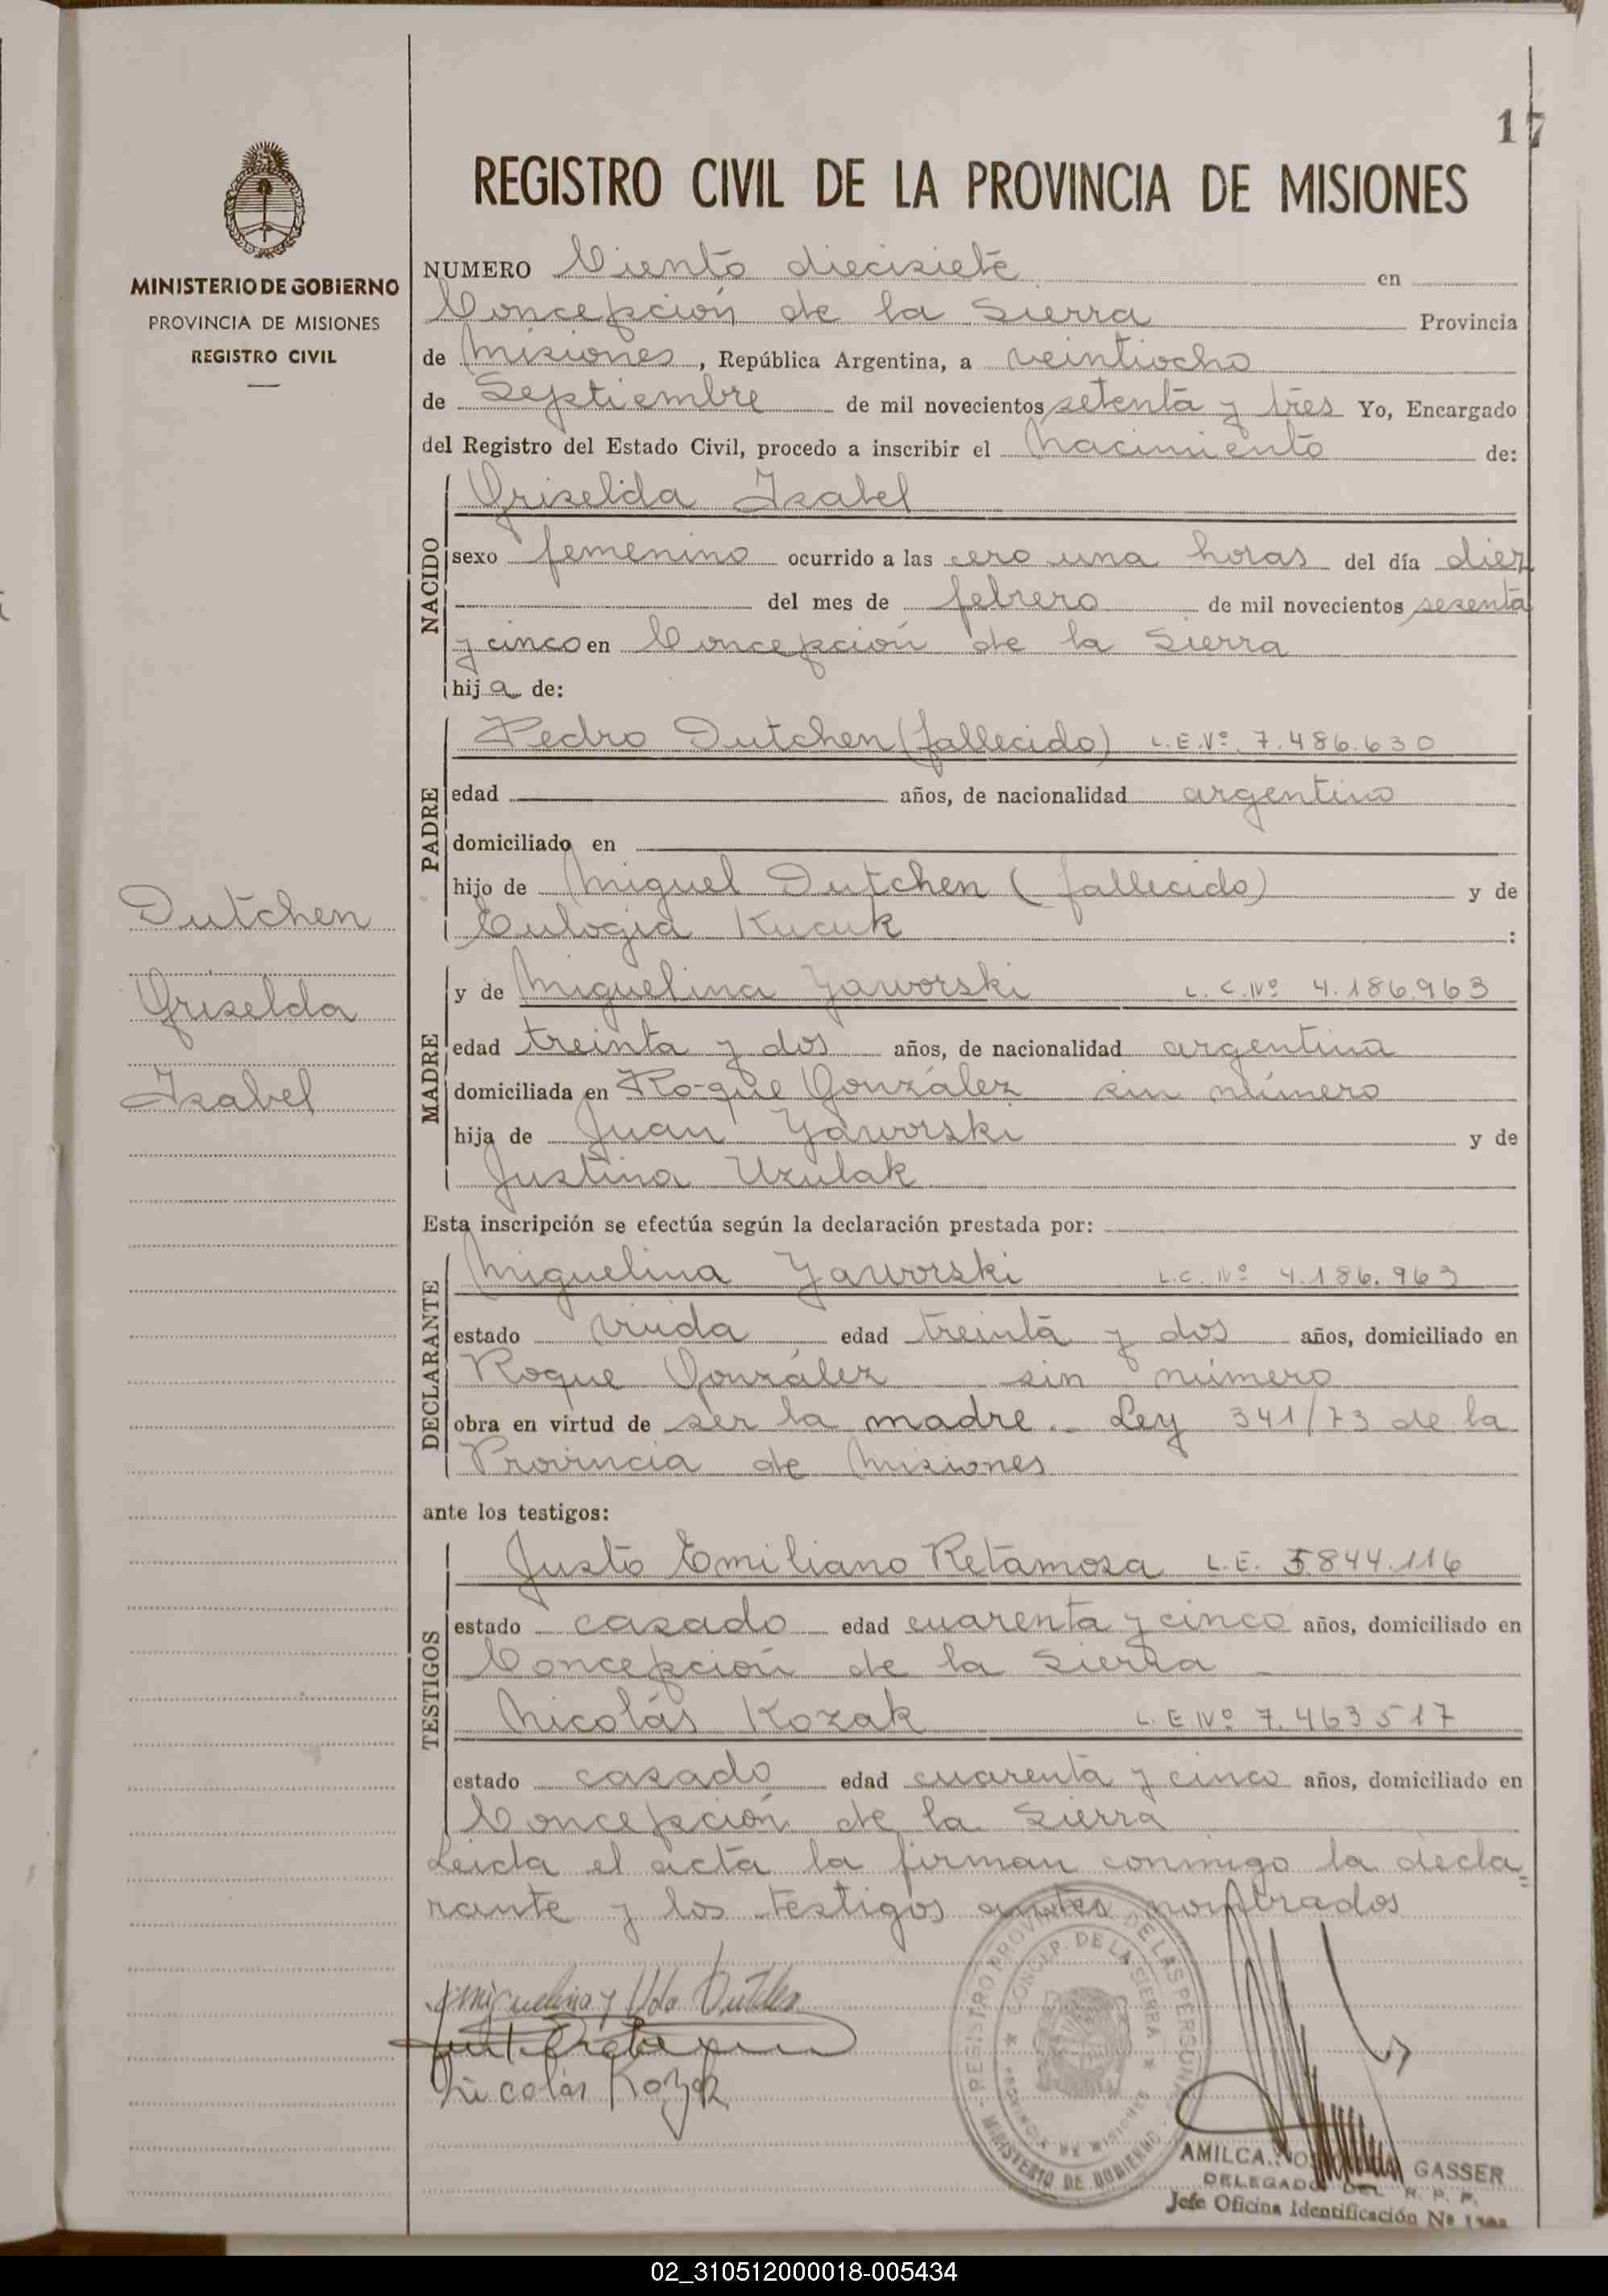 17
REGISTRO CIVIL DE LA PROVINCIA DE MISIONES
MINISTERIO DE GOBIERNO
PROVINCIA DE MISIONES
REGISTRO CIVIL
NUMERO Ciento diecisiete en
Concepción de la Sierra Provincia
de Misiones, República Argentina, a veintiocho
de Septiembre de mil novecientos setenta y tres Yo, Encargado
del Registro del Estado Civil, procedo a inscribir el Nacimiento de:
NACIDO
Griselda Isabel
sexo femenino ocurrido a las cero una horas del día diez
del mes de febrero de mil novecientos sesenta
y cinco en Concepción de la Sierra
hija de:
PADRE
Pedro Dutchen (fallecido) L.E.Nº 7.486.630
edad años, de nacionalidad argentino
domiciliado en
hijo de Miguel Dutchen (fallecido) y de
Eulogia Kucuk :
Dutchen
Griselda
Isabel
MADRE
y de Miguelina Yaworski L.C.Nº 4.186.963
edad treinta y dos años, de nacionalidad argentina
domiciliada en Roque González sin número
hija de Juan Yaworski y de
Justina Uzulak
Esta inscripción se efectúa según la declaración prestada por:
DECLARANTE
Miguelina Yaworski L.C. Nº 4.186.963
estado viuda edad treinta y dos años, domiciliado en
Roque González sin número
obra en virtud de ser la madre.- Ley 341/73 de la
Provincia de Misiones
ante los testigos:
TESTIGOS
Justo Emiliano Retamosa L.E. 5.844.116
estado casado edad cuarenta y cinco años, domiciliado en
Concepción de la Sierra
Nicolás Kozak L.E Nº 7.463517
estado casado edad cuarenta y cinco años, domiciliado en
Concepción de la Sierra
Leída el acta la firman conmigo la decla=
rante y los testigos antes nombrados
Miguelina Y Vda Dutchen
Nicolás Kozak
REGISTRO PROVINCIAL DE LAS PERSONAS
CONCEP. DE LA SIERRA
PROVINCIA DE MISIONES
MINISTERIO DE GOBIERNO
GASSER
DELEGADO DEL R. P. P.
Jefe Oficina Identificación Nº
02_310512000018-005434